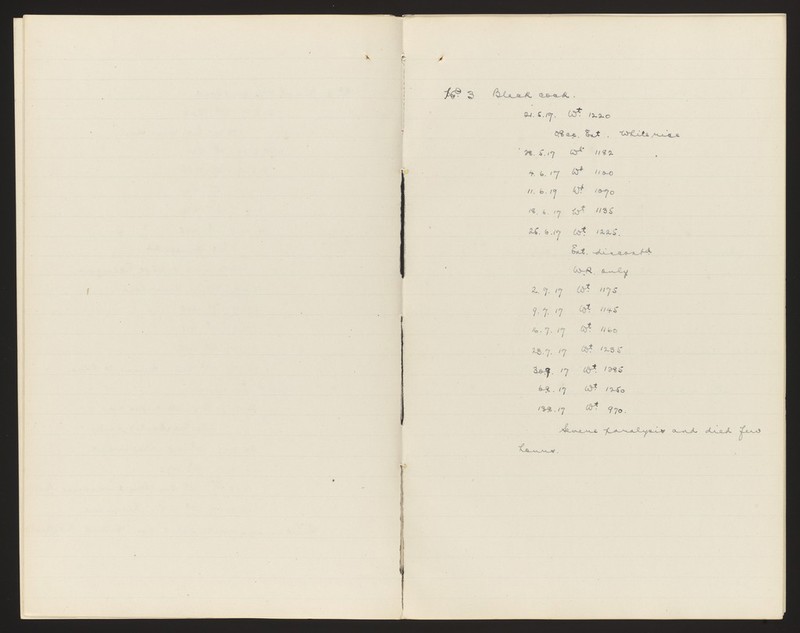 No. 3 Black cock.
21.5.17. Wt. 1220
Ext. White rice
28.5.17 Wt 1182
4.6.17 Wt 1120
11.6.17 Wt 1090
18.6.17 Wt 1135
25.6.17 Wt. 1225.
Ext. discontd
W.R only
2.7.17 Wt. 1175
9.7.17 Wt. 1145
16.7.17 Wt. 1160
23.7.17 Wt. 1235
17 Wt. 1285
6.8.17 Wt 1250
13.8.17 Wt. 970.
Severe paralysis and died few
hours.